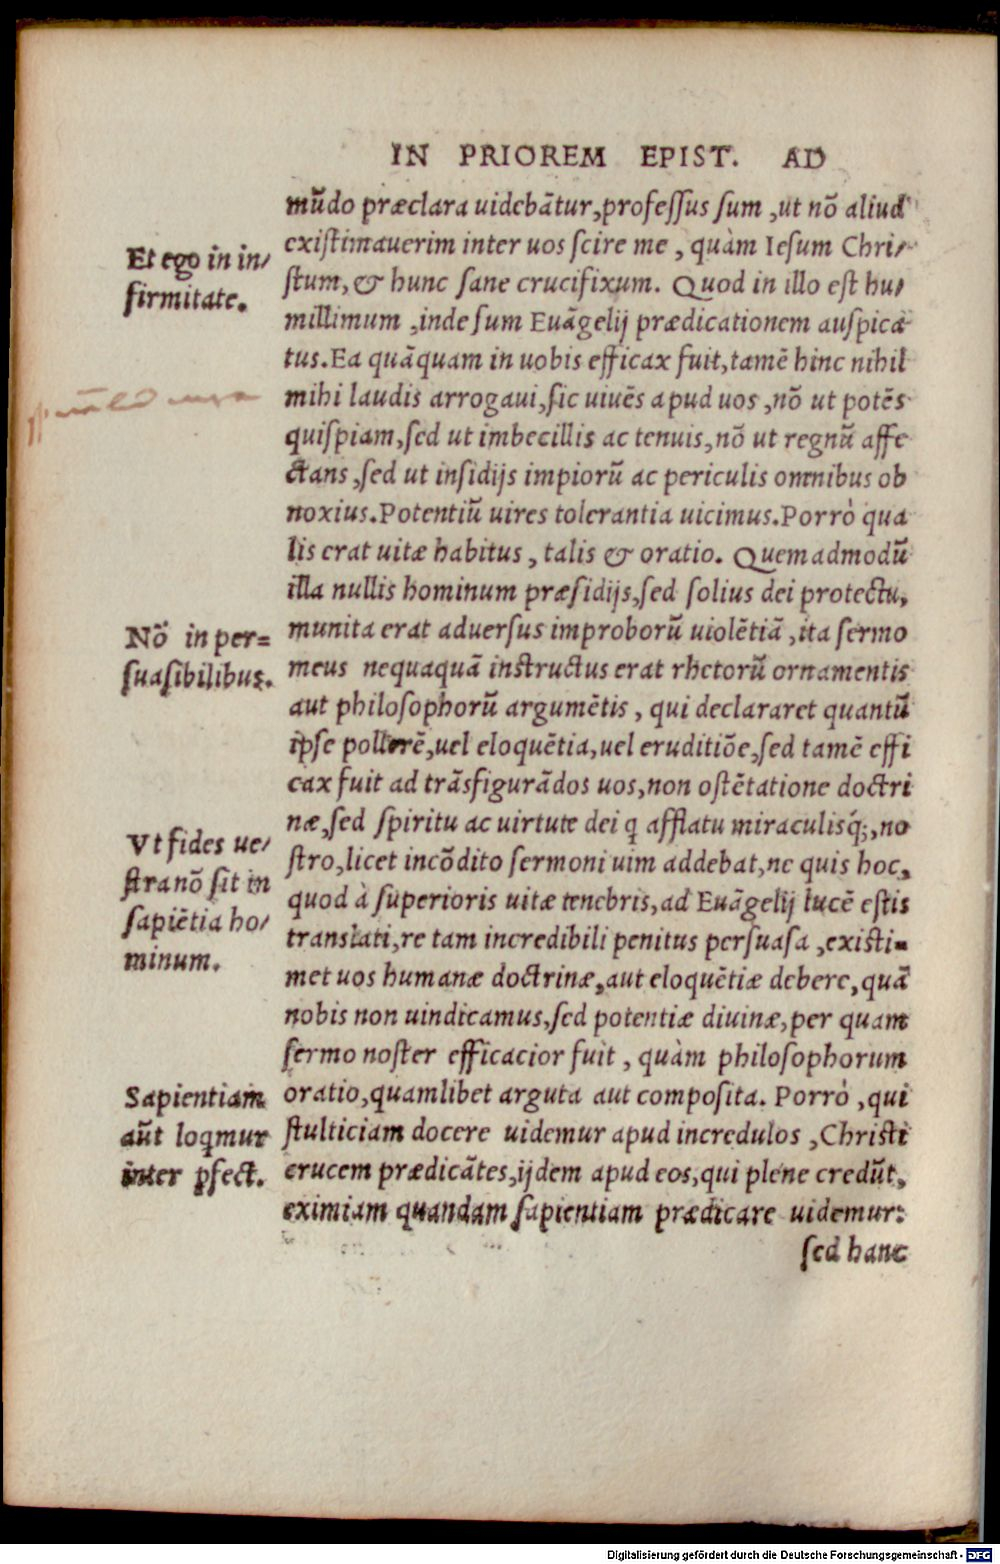 IN PRIOREM EPIST. AD
mũdo præclara uidebãtur, professus sum, ut nõ aliud
existimauerim inter uos scire me, quàm Iesum Chri/
stum, & hunc sane crucifixum. Quod in illo est hu/
millimum, inde sum Euãgelij prædicationem auspica
tus. Ea quãquam in uobis efficax fuit, tamẽ hinc nihil
mihi laudis arrogaui, sic uiuẽs apud uos, nõ ut potẽs
quispiam, sed ut imbecillis ac tenuis, nõ ut regnũ affe
ctans, sed ut insidijs impiorũ ac periculis omnibus ob
noxius. Potentiũ uires tolerantia uicimus. Porrò qua
lis erat uitæ habitus, talis & oratio. Quemadmodũ
illa nullis hominum præsidijs, sed solius dei protectu,
munita erat aduersus improborũ uiolẽtiã, ita sermo
meus nequaquã instructus erat rhetorũ ornamentis
aut philosophorũ argumẽtis, qui declararet quantũ
ipse pollerẽ, uel eloquẽtia, uel eruditiõe, sed tamẽ effi
cax fuit ad trãsfigurãdos uos, non ostẽtatione doctri
næ, sed spiritu ac uirtute dei q afflatu miraculisq́;, no
stro, licet incõdito sermoni uim addebat, ne quis hoc,
quod à superioris uitæ tenebris, ad Euãgelij lucẽ estis
translati, re tam incredibili penitus persuasa, existi=
met uos humanæ doctrinæ, aut eloquẽtiæ debere, quã
nobis non uindicamus, sed potentiæ diuinæ, per quam
sermo noster efficacior fuit, quàm philosophorum
oratio, quamlibet arguta aut composita. Porrò, qui
stulticiam docere uidemur apud incredulos, Christi
crucem prædicãtes, ijdem apud eos, qui plene credũt,
eximiam quandam sapientiam prædicare uidemur:
sed hanc
Et ego in in/
firmitate.
Nõ in per=
suasibilibus.
Vt fides ue/
stra nõ sit in
sapiẽtia ho/
minum.
Sapientiam
aũt loqmur
inter ꝑfect.
Digitalisierung gefördert durch die Deutsche Forschungsgemeinschaft - DFG